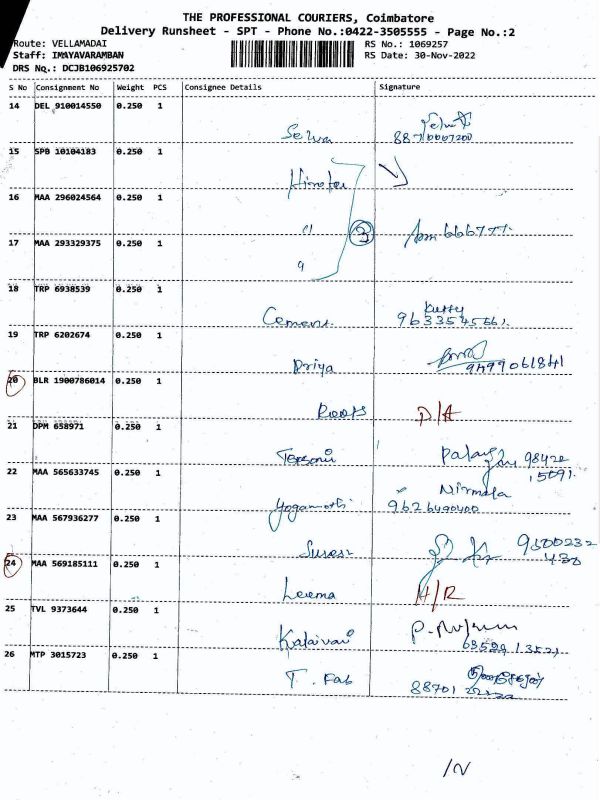 THE PROFESSIONAL COURIERS, Coimbatore
Delivery Runsheet - SPT - Phone No.:0422-3505555 - Page No.:2
Route: VELLAMADAI RS No.: 1069257
Staff: IMAYAVARAMBAN RS Date: 30-Nov-2022
DRS No.: DCJB106925702
S No Consignment No Weight PCS Consignee Details Signature
14 DEL 910014550 0.250 1
Selva
15 SPB 10104183 0.250 1
16 MAA 296024564 0.250 1
11 3
17 MAA 293329375 0.250 1
9
18 TRP 6938539 0.250 1
Kutty
Cement 9633545661.
19 TRP 6202674 0.250 1
Priya
20 BLR 1900786014 0.250 1
Roots D/A
21 DPM 658971 0.250 1
98422
22 MAA 565633745 0.250 1
Nirmala
9626490400
23 MAA 567936277 0.250 1
Suresh
24 MAA 569185111 0.250 1
Leema H/R
25 TVL 9373644 0.250 1
Kalaivani
26 MTP 3015723 0.250 1
T. Fab
88701